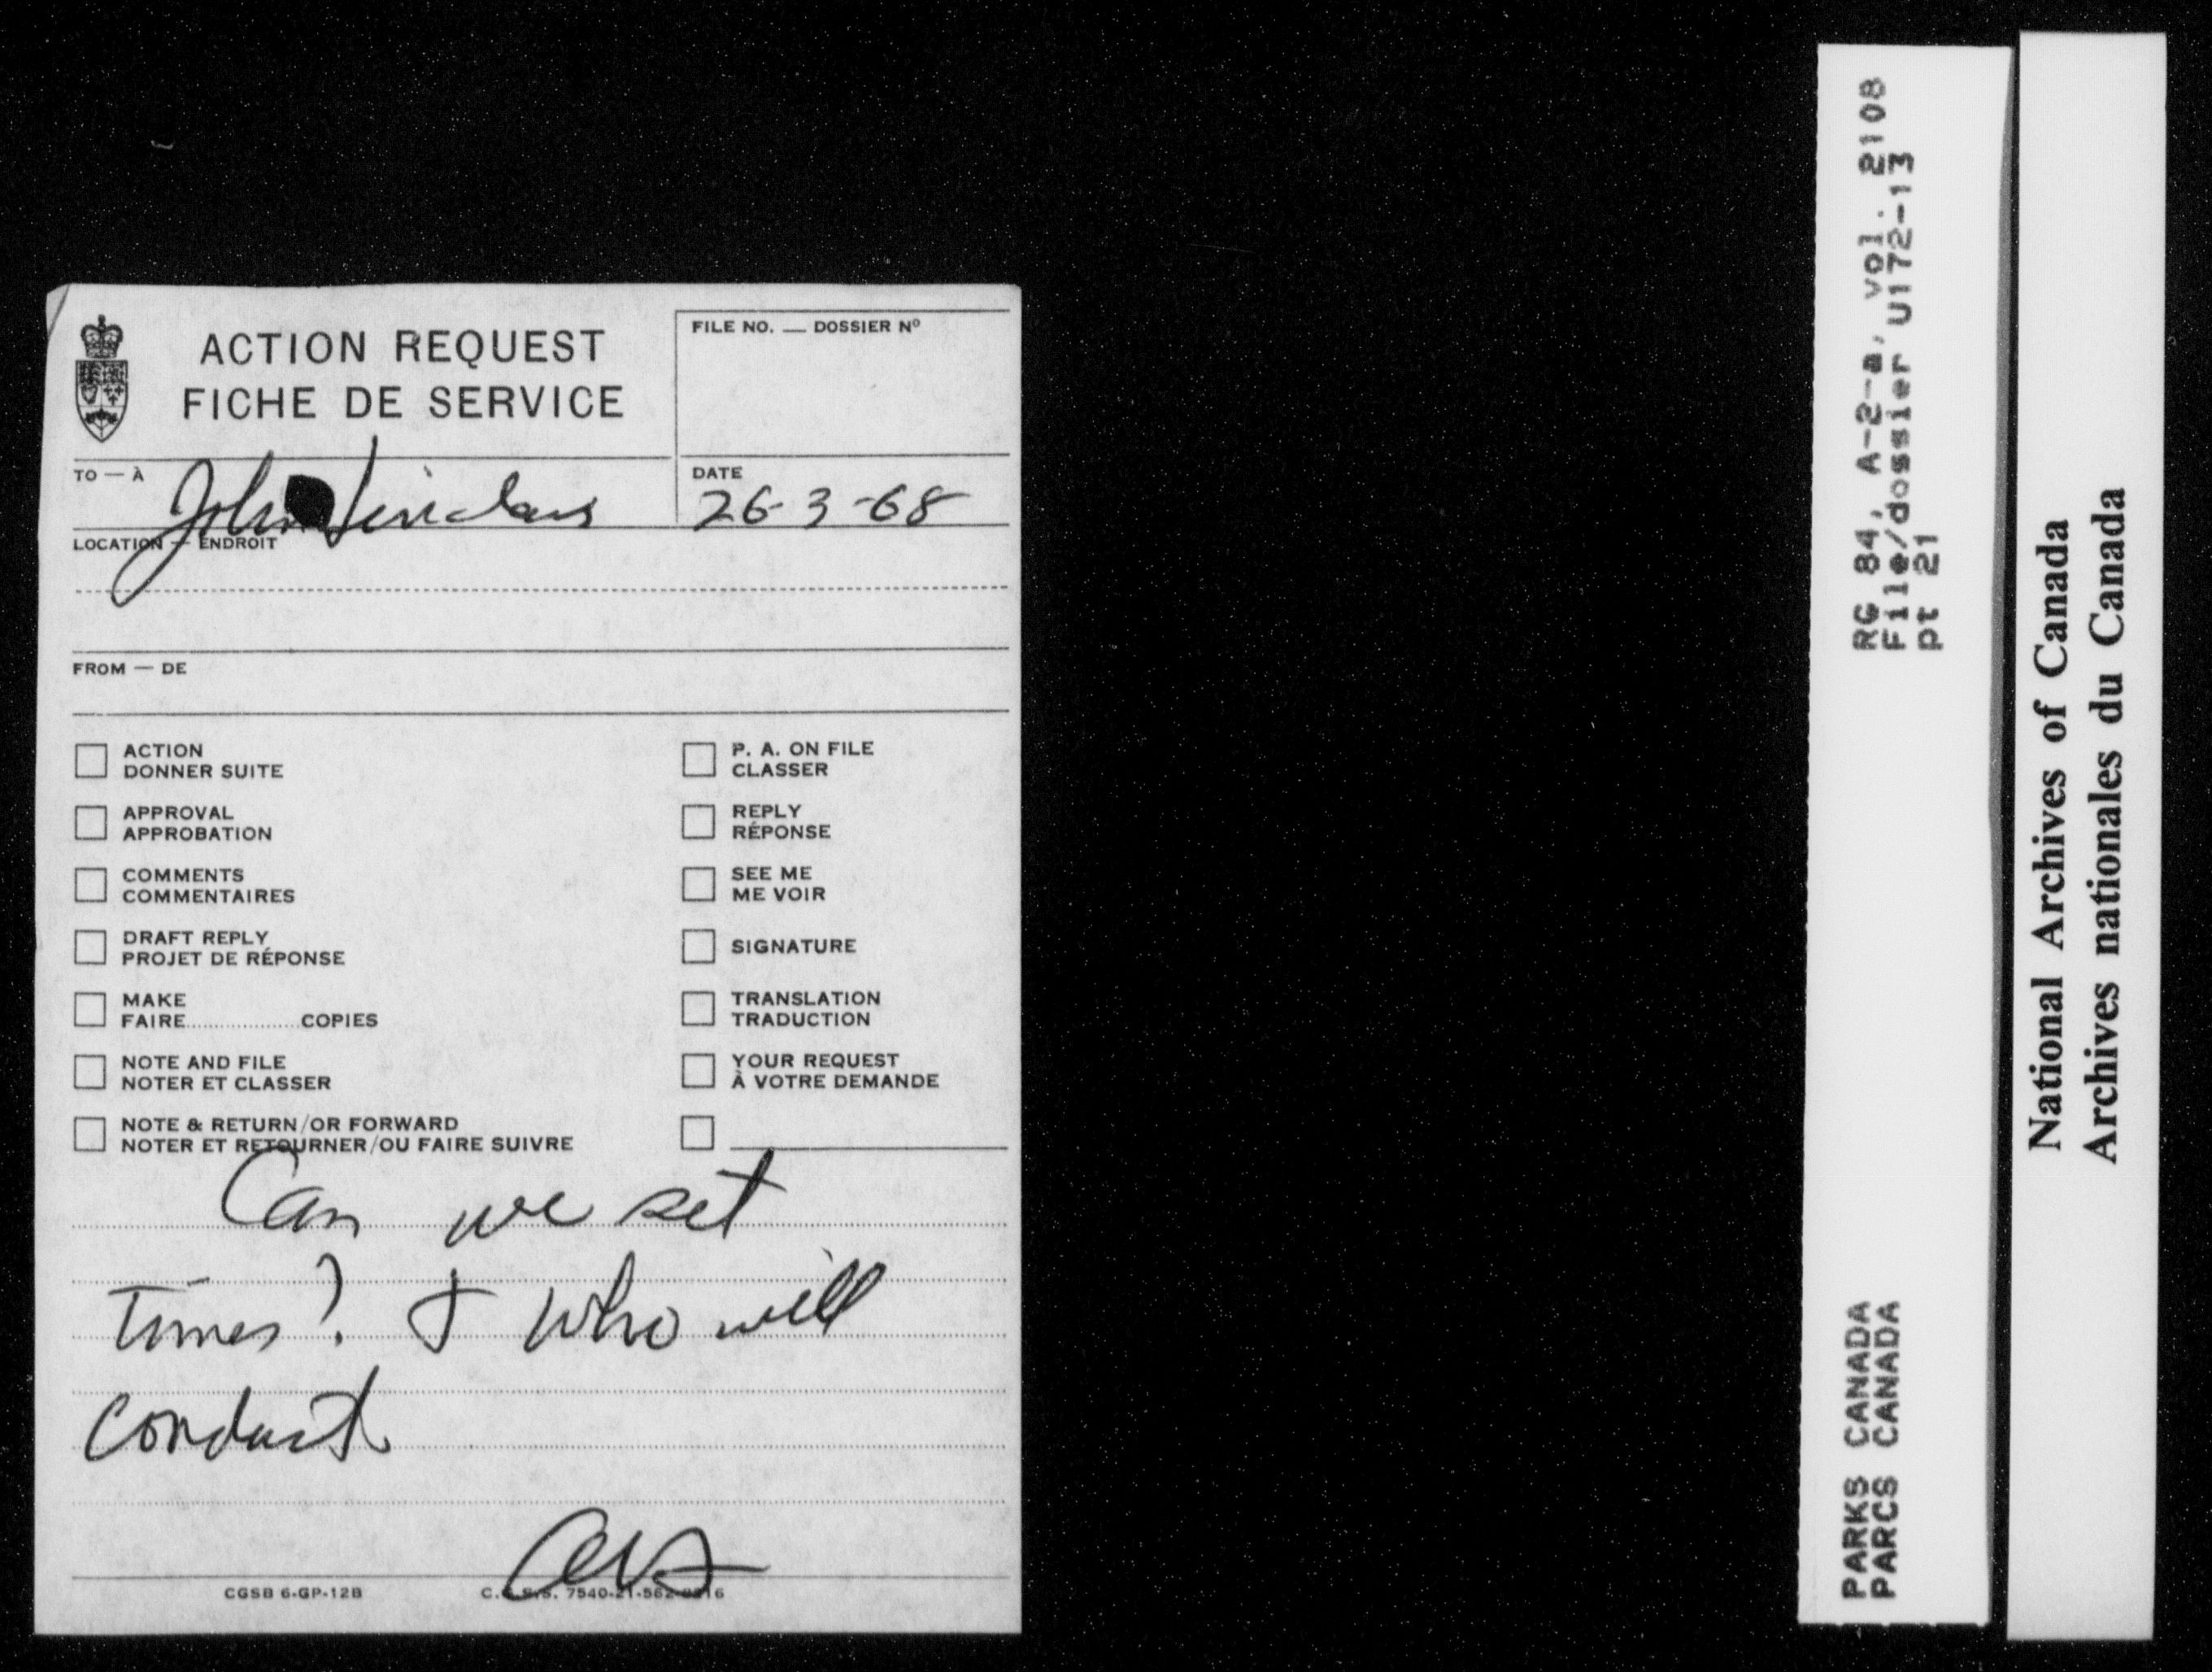 ACTION REQUEST
FICHE DE SERVICE
FILE NO. — DOSSIER Nº
TO — À John
DATE
26-3-68
LOCATION — ENDROIT
FROM — DE
ACTION
DONNER SUITE
P. A. ON FILE
CLASSER
APPROVAL
APPROBATION
REPLY
RÉPONSE
COMMENTS
COMMENTAIRES
SEE ME
ME VOIR
DRAFT REPLY
PROJET DE RÉPONSE
SIGNATURE
MAKE
FAIRE....................COPIES
TRANSLATION
TRADUCTION
NOTE AND FILE
NOTER ET CLASSER
YOUR REQUEST
À VOTRE DEMANDE
NOTE & RETURN/OR FORWARD
NOTER ET RETOURNER/OU FAIRE SUIVRE
Can we set
times? & who will
conduct
CGSB 6-GP-12B
7540-21-562
RG 84, A-2-a, vol. 2108
File/dossier U172-13
pt 21
PARKS CANADA
PARCS CANADA
National Archives of Canada
Archives nationales du Canada